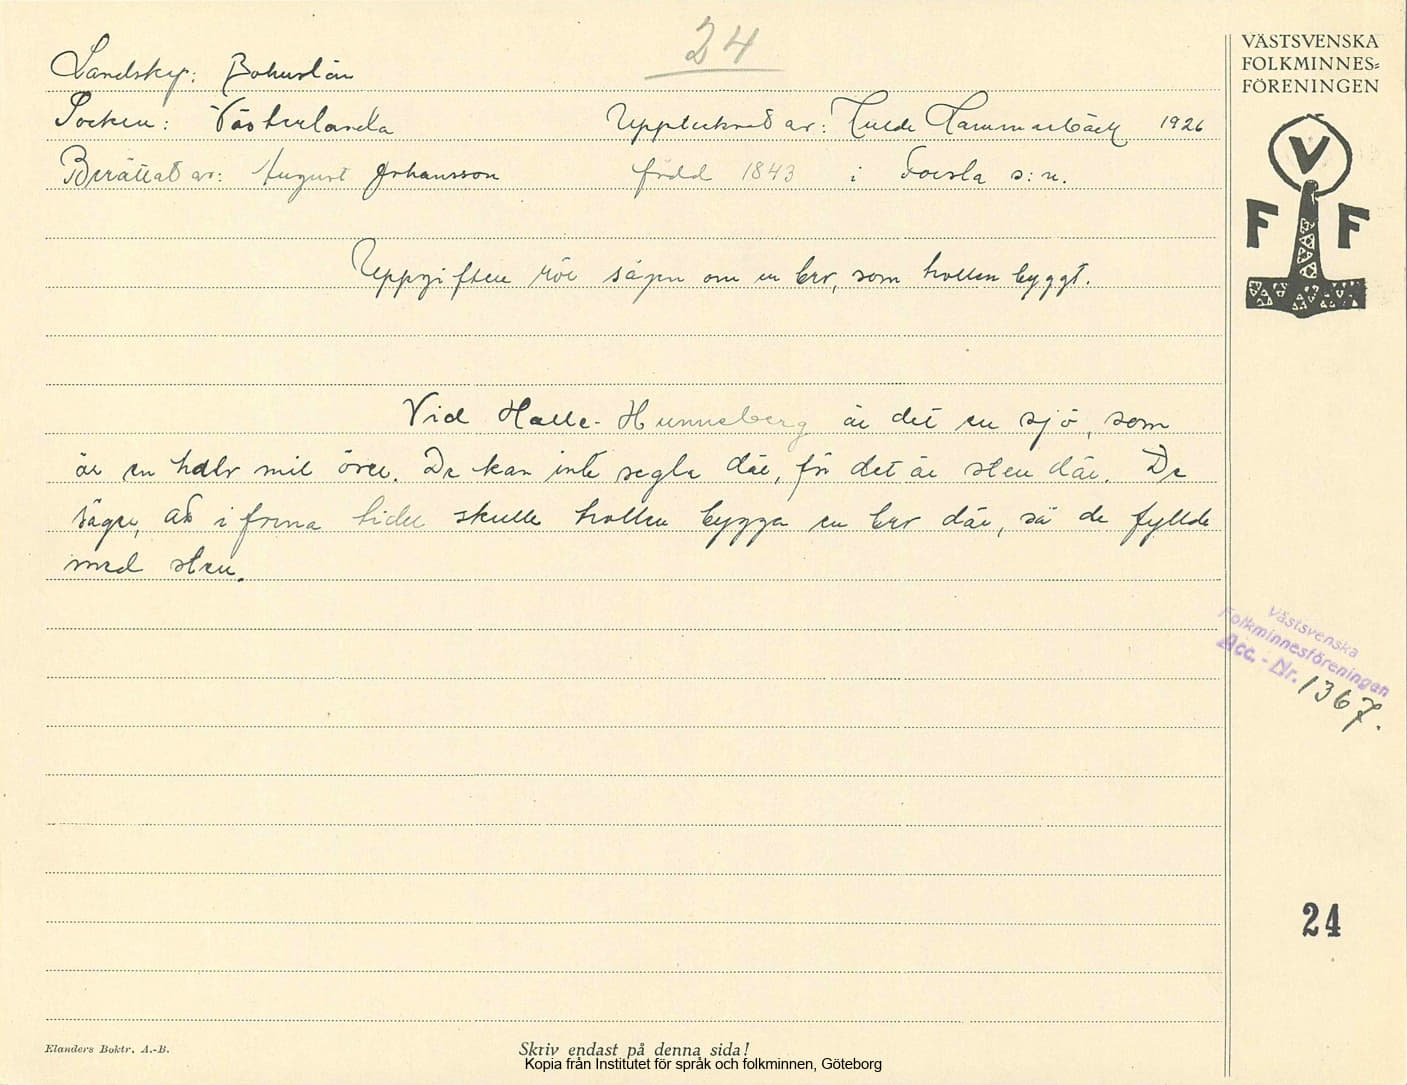 24
VÄSTSVENSKA
FOLKMINNES=
FÖRENINGEN
Landskap: Bohuslän
Socken: Västerlanda Upptecknat av: Hulda Hammarbäck 1926
Berättat av: August Johansson född 1843 i Foresla s:n.
V
F F
Uppgiften rör sägen om en bro, som trollen byggt.
Vid Halle-Hunneberg är det en sjö, som
är en halv mil över. De kan inte segla där, för det är sten där. De
säger, att i forna tider skulle trollen bygga en bro där, så de fyllde
med sten.
Västsvenska
Folkminnesföreningen
Acc.-Nr. 1367.
24
Elanders Boktr. A.-B.
Skriv endast på denna sida!
Kopia från Institutet för språk och folkminnen, Göteborg